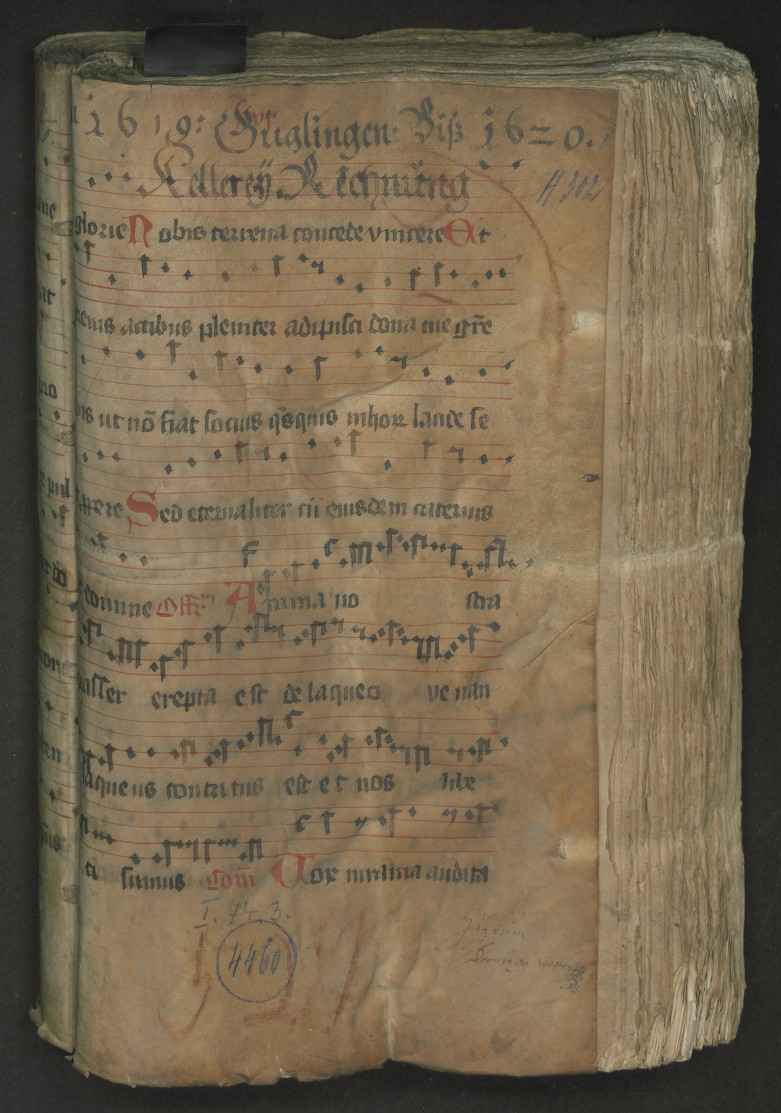 1619: Güglingen: Biß 1620.
Kellereÿ Rechnŭng
A 302
glorie Nobis terrena concede vincere Et
actibus pleniter adipisci dona tue grē
ut nō fiat socius q̄squis in hoꝝ laude se
Sed eternaliter cū eiusdem
comune Offr̄m Anima no stra
passer erepta est de laqueo venan
laqueus contritus est et nos libe
ti sumus Cōm Vox in rama audita
I. 94. 3.
4460